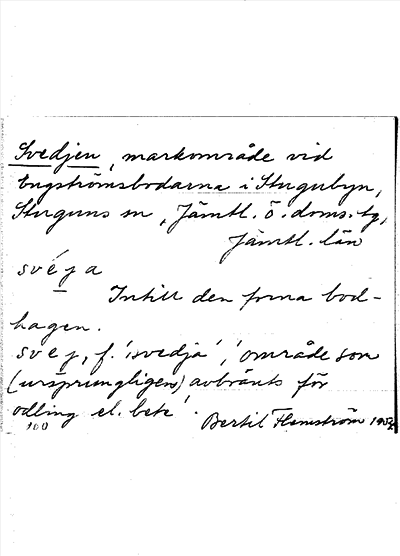 Svedjen, markområde vid
Engströmsbodarna i Stugubyn,
Stuguns sn, Jämtl. ö. doms. tg,
Jämtl. län
svéja
Intill den forna bod-
hagen.
svej, f. 'svedja', 'område som
(ursprungligen) avbränts för
odling el. bete'.
100
Bertil Flemström